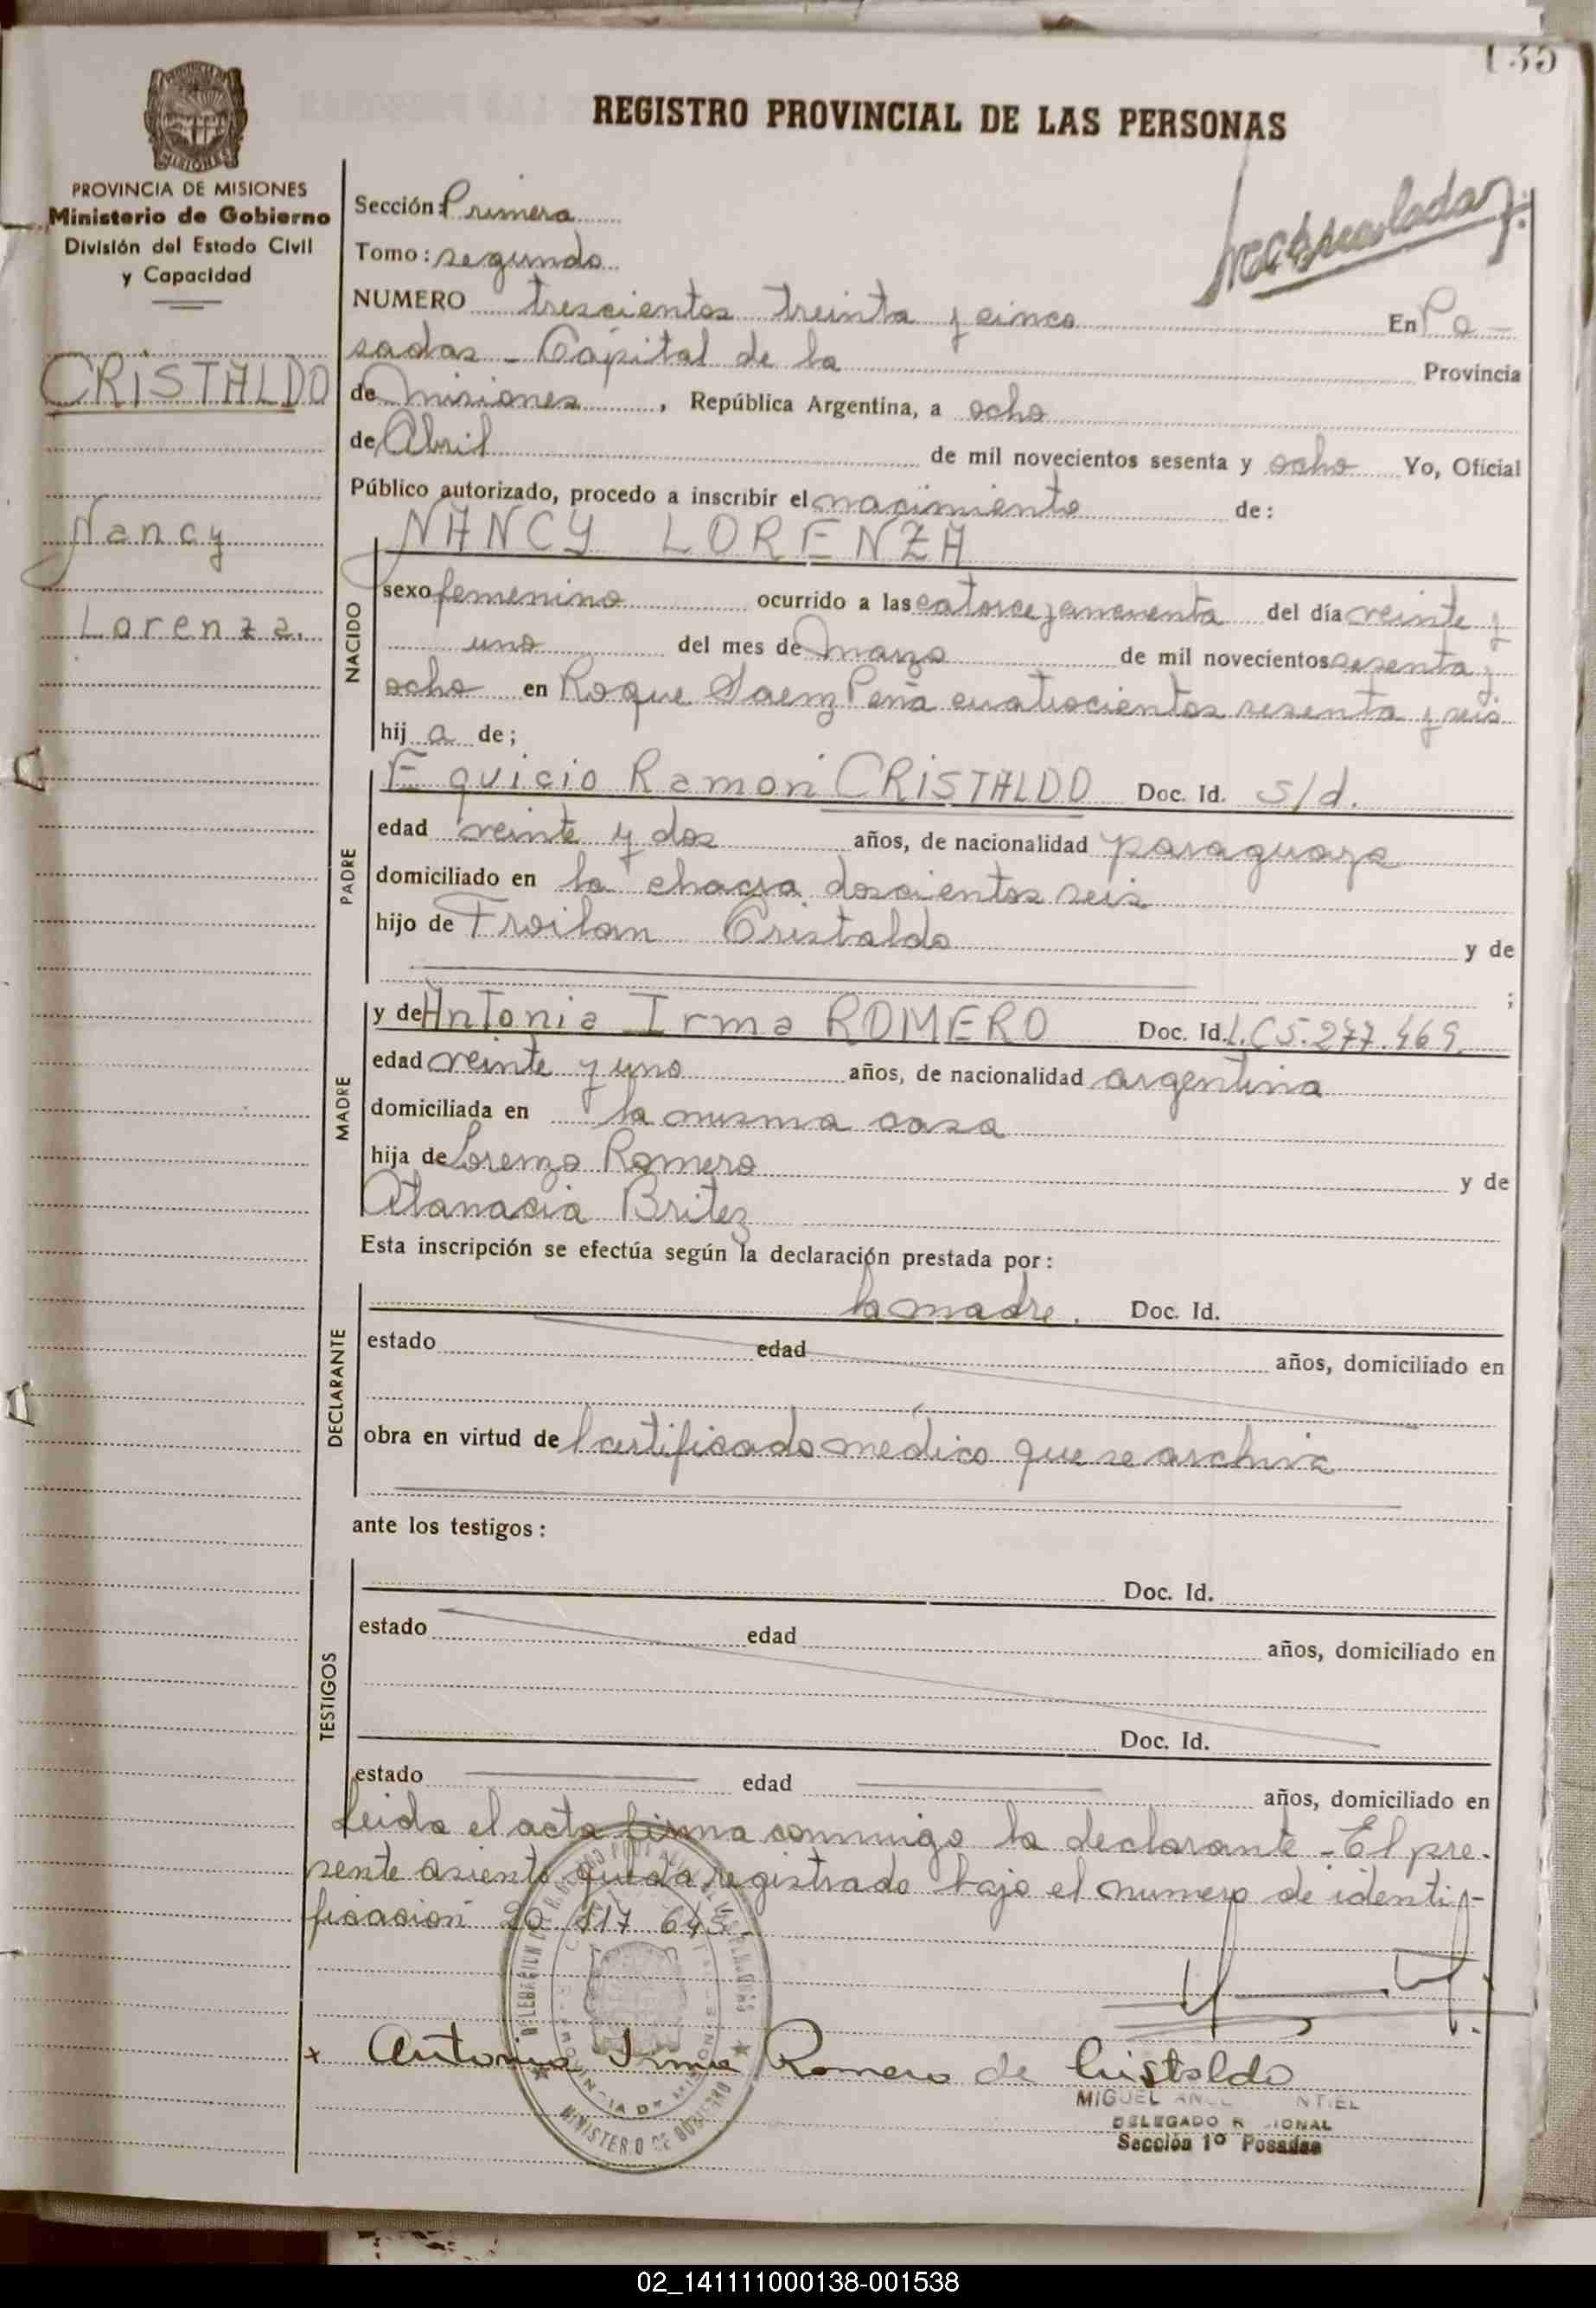 135
REGISTRO PROVINCIAL DE LAS PERSONAS
MISIONES
PROVINCIA DE MISIONES
Ministerio de Gobierno
División del Estado Civil
y Capacidad
CRISTALDO
Nancy
Lorenza.
Sección: Primera
Tomo: segundo
NUMERO trescientos treinta y cinco En Po-
sadas - Capital de la Provincia
de Misiones, República Argentina, a ocho
de Abril de mil novecientos sesenta y ocho Yo, Oficial
Público autorizado, procedo a inscribir el nacimiento de:
NANCY LORENZA
NACIDO
sexo femenino ocurrido a las catorce y cincuenta del día veinte y
uno del mes de Marzo de mil novecientos sesenta y
ocho en Roque Saenz Peña cuatrocientos sesenta y seis
hij a de;
PADRE
Equicio Ramón CRISTALDO Doc. Id. s/d.
edad veinte y dos años, de nacionalidad paraguaya
domiciliado en la chacra doscientos seis
hijo de Froilan Cristaldo y de
;
MADRE
y de Antonia Irma ROMERO Doc. Id. L.C 5.277.469
edad veinte y uno años, de nacionalidad argentina
domiciliada en la misma casa
hija de Lorenzo Romero y de
Atanacia Britez
Esta inscripción se efectúa según la declaración prestada por:
DECLARANTE
la madre. Doc. Id.
estado edad años, domiciliado en
obra en virtud del certificado médico que se archiva
ante los testigos:
TESTIGOS
Doc. Id.
estado edad años, domiciliado en
Doc. Id.
estado edad años, domiciliado en
Leida el acta firma conmigo la declarante - El pre-
sente asiento queda registrado bajo el numero de identi-
ficación 20 817 645
x Antonia Irma Romero de Cristaldo
MINISTERIO DE GOBIERNO
MIGUEL
DELEGADO
Sección 1º Posadas
02_141111000138-001538